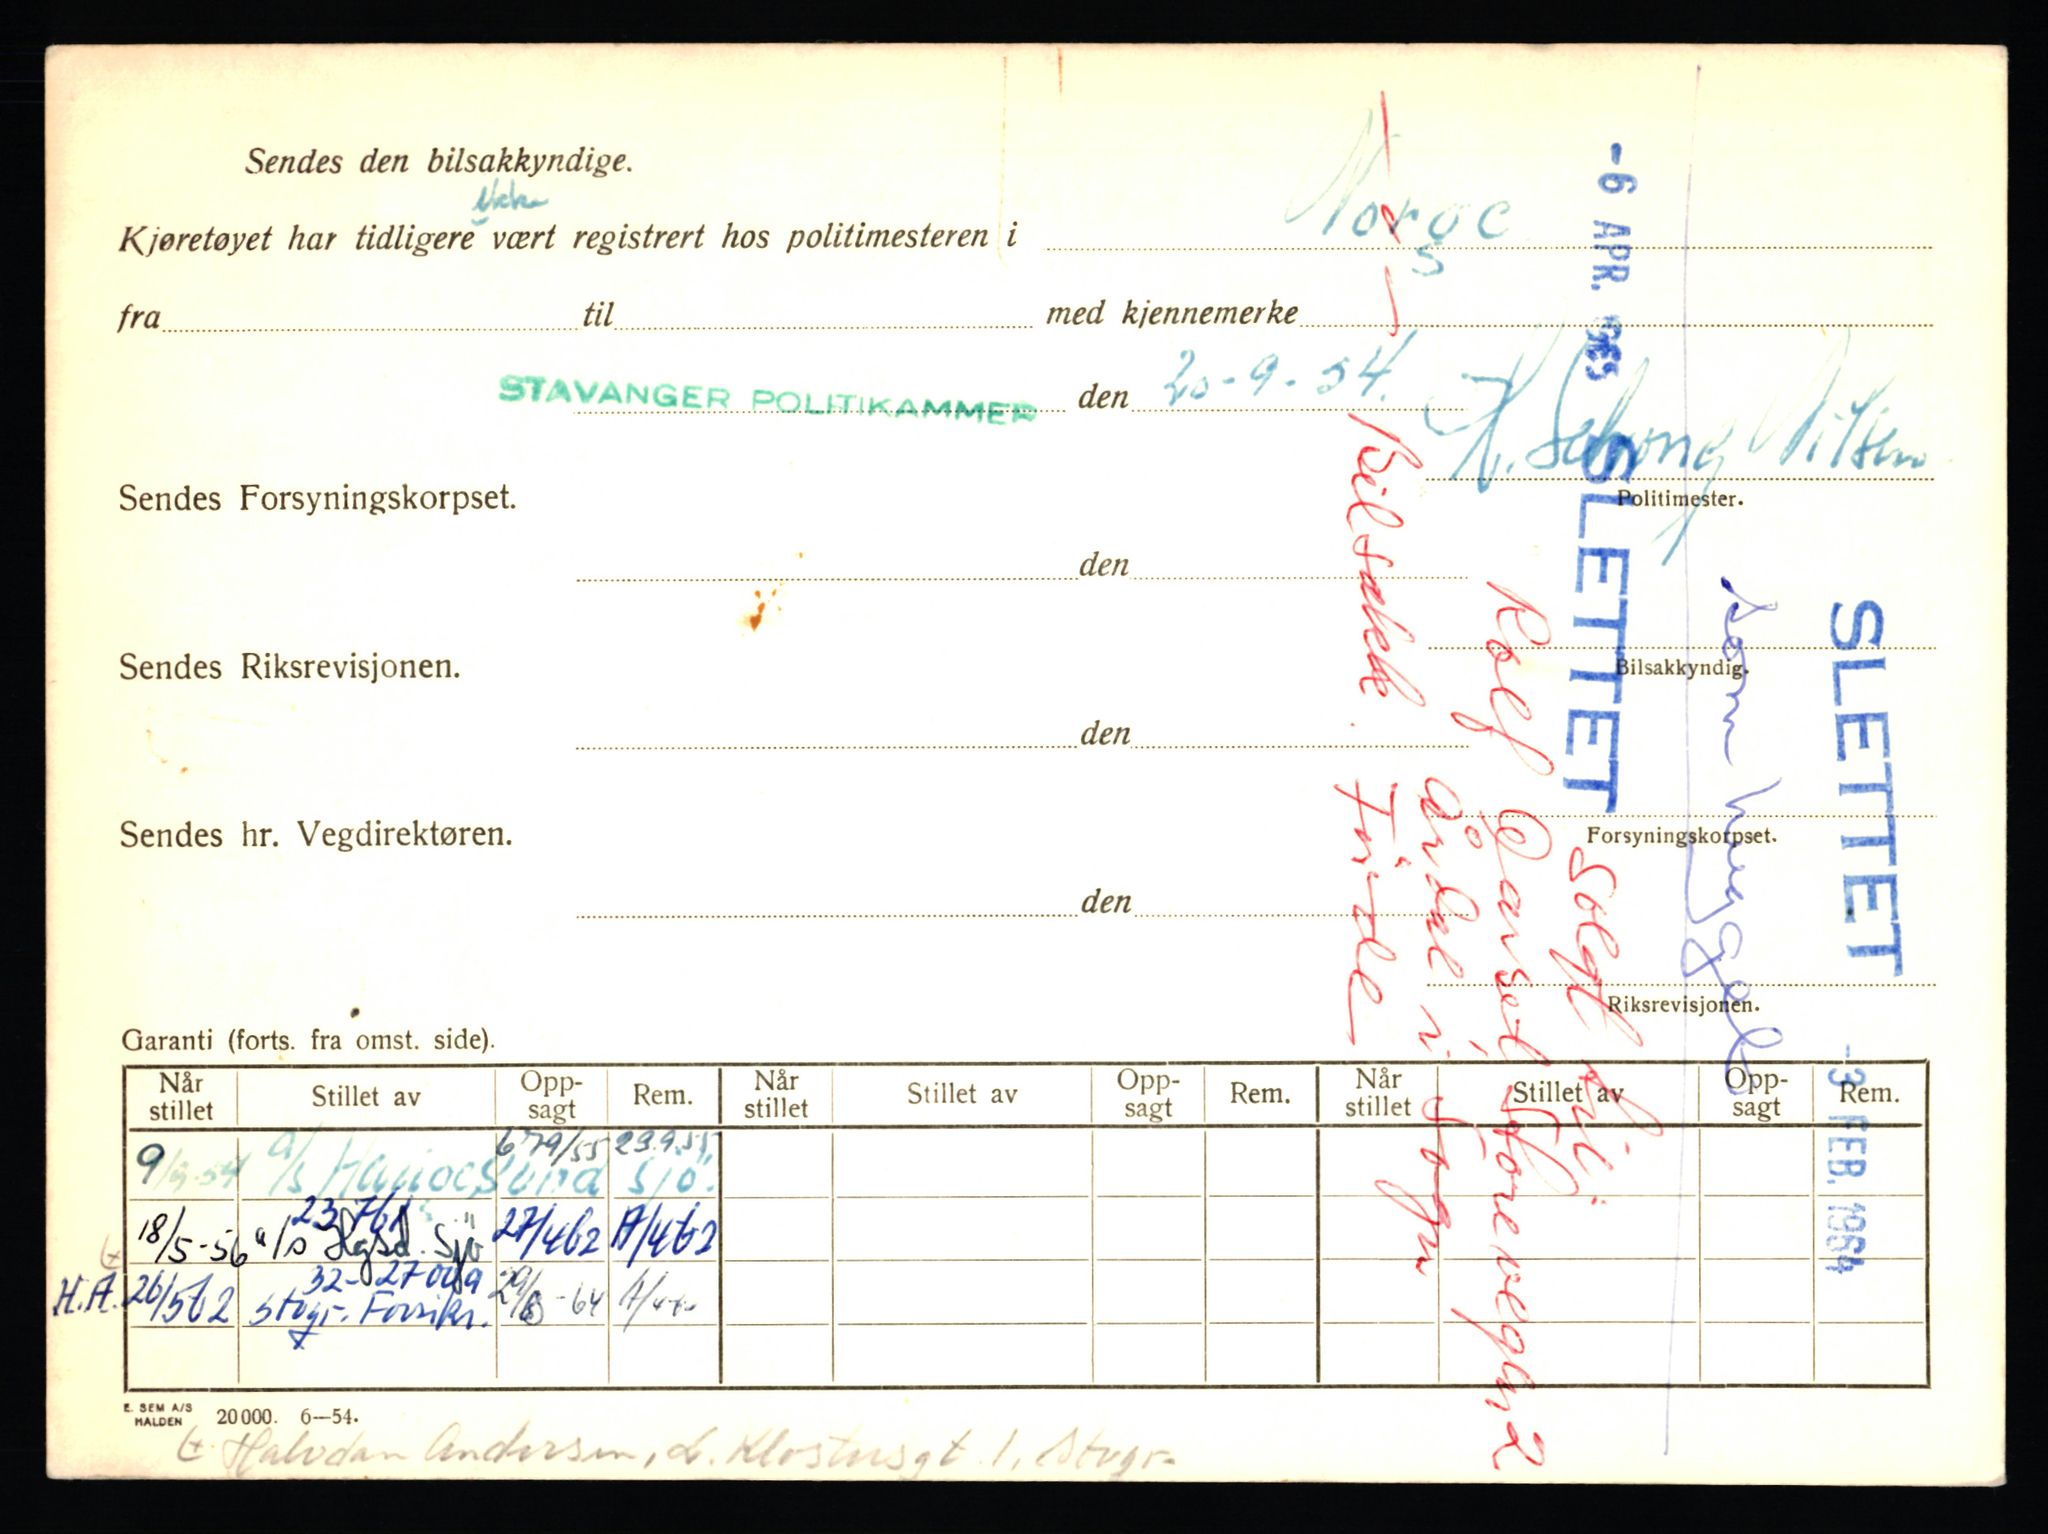 Sendes den bilsakkyndige.
Kjøretøyet har tidligere ikke vært registrert hos politimesteren i Norge
fra til med kjennemerke
STAVANGER POLITIKAMMER den 20-9-54.
Politimester.
Sendes Forsyningskorpset.
den
Bilsakkyndig.
Sendes Riksrevisjonen.
den
Forsyningskorpset.
Sendes hr. Vegdirektøren.
den
Riksrevisjonen.
-6 APR.
SLETTET
SLETTET
-3 FEB. 1964
Solgt til:
Rolf
Årdal i Sogn
Bilsakk. Førde
Garanti (forts. fra omst. side).
Når stillet Stillet av Opp-sagt Rem. Når stillet Stillet av Opp-sagt Rem. Når stillet Stillet av Opp-sagt Rem.
9/9-54 a/s Haugesund Sjö. 23.9.55
18/5-56 a/s Hgsd. Sjö 27/462 A/462
H.A. 26/562 Stvgr. Forsikr. 29/8-64
E. SEM A/S
HALDEN 20000. 6—54.
Halvdan Andersen, L. Klostergt 1, Stvgr.